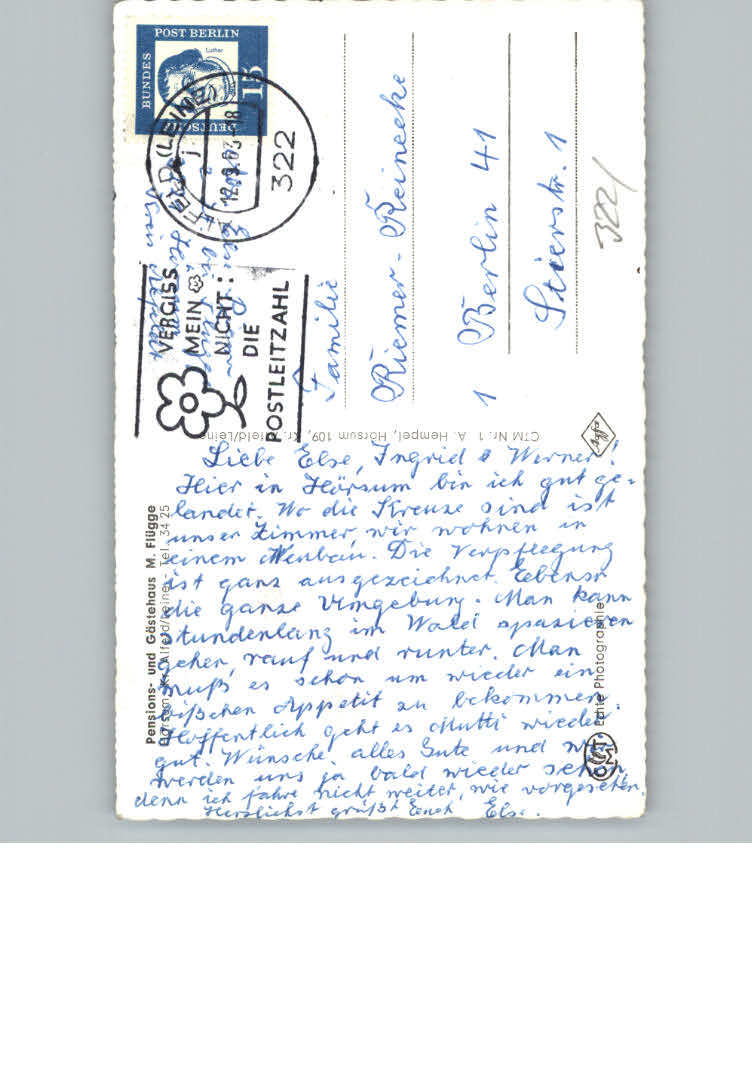 Liebe Else, Ingrid & Werner!
Hier in Hörsum bin ich gut ge-
landet. Wo die Kreuze sind ist
unser Zimmer, wir wohnen in
einem Neubau. Die Verpflegung
ist ganz ausgezeichnet. Ebenso
die ganze Umgebung. Man kann
stundenlang im Wald spazieren
gehen, rauf und runter. Man
muß es schon um wieder ein
bißchen Appetit zu bekommen.
Hoffentlich geht es Mutti wieder
gut. Wünsche alles Gute und wir
werden uns ja bald wieder sehen,
denn ich fahre nicht weiter, wie vorgesehen.
Herzlichst grüßt Euch Else.
Pensions- und Gästehaus M. Flügge
Hörsum, Kr. Alfeld/Leine - Tel. 34 25
CTM Nr. 1 A. Hempel, Hörsum 109, Kr. Alfeld/Leine
Agfa
Echte Photographie
DEUTSCHE
BUNDES
POST BERLIN
Luther
15
ALFELD (LEINE)
12.9.63-18
322
VERGISS
MEIN
NICHT:
DIE
POSTLEITZAHL
Familie
Riemer-Reinecke
1 Berlin 41
Stierstr. 1
322/